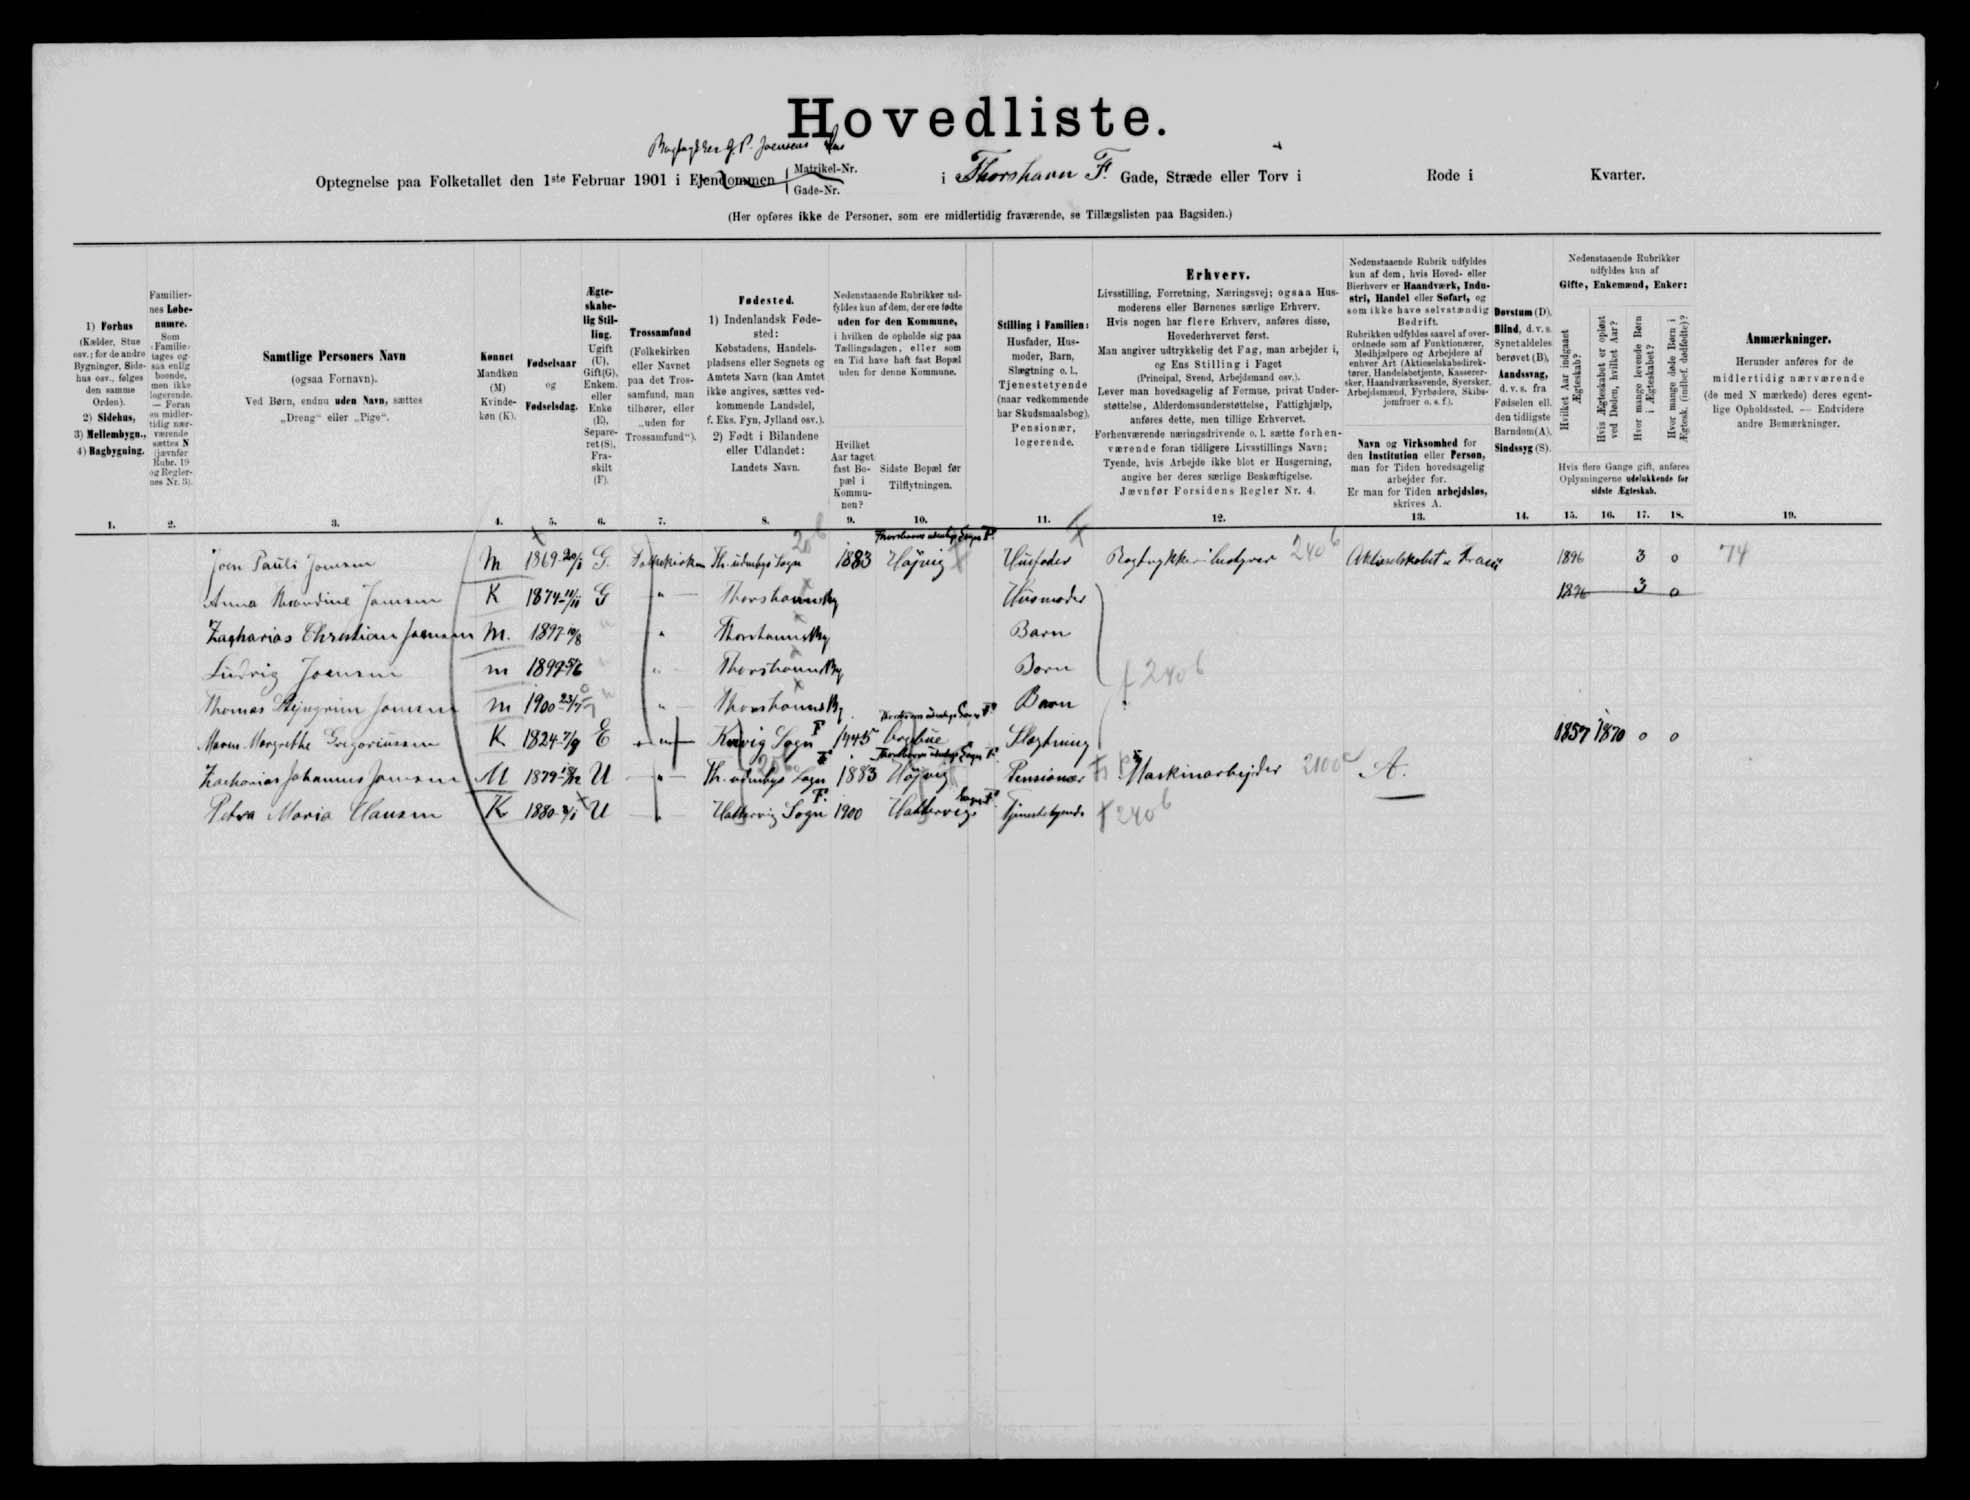 Hovedliste.
Bogtrykker J. P. Joensens Hus
Optegnelse paa Folketallet den 1ste Februar 1901 i Ejendommen Matrikel-Nr. Gade-Nr. i Thorshavn F. Gade, Stræde eller Torv i Rode i Kvarter.
(Her opføres ikke de Personer, som ere midlertidig fraværende, se Tillægslisten paa Bagsiden.)
1) Forhus
(Kælder, Stue
osv.; for de andre
Bygninger, Side-
hus osv., følges
den samme
Orden).
2) Sidehus,
3) Mellembygn.,
4) Bagbygning.
Familier-
nes Løbe-
numre.
Som
„Familie“
tages og-
saa enlig
boende,
men ikke
logerende.
— Foran
en midler-
tidig nær-
værende
sættes N
(jævnfør
Rubr. 19
og Regler-
nes Nr. 3).
Samtlige Personers Navn
(ogsaa Fornavn).
Ved Børn, endnu uden Navn, sættes
„Dreng“ eller „Pige“.
Kønnet
Mandkøn
(M)
Kvinde-
køn (K).
Fødselsaar
og
Fødselsdag.
Ægte-
skabe-
lig Stil-
ling.
Ugift
(U),
Gift(G),
Enkem.
eller
Enke
(E),
Separe-
ret (S),
Fra-
skilt
(F).
Trossamfund
(Folkekirken
eller Navnet
paa det Tros-
samfund, man
tilhører, eller
„uden for
Trossamfund“).
Fødested.
1) Indenlandsk Føde-
sted:
Købstadens, Handels-
pladsens eller Sognets og
Amtets Navn (kan Amtet
ikke angives, sættes ved-
kommende Landsdel,
f. Eks. Fyn, Jylland osv.).
2) Født i Bilandene
eller Udlandet:
Landets Navn.
Nedenstaaende Rubrikker ud-
fyldes kun af dem, der ere fødte
uden for den Kommune,
i hvilken de opholde sig paa
Tællingsdagen, eller som
en Tid have haft fast Bopæl
uden for denne Kommune.
Hvilket
Aar taget
fast Bo-
pæl i
Kommu-
nen?
Sidste Bopæl før
Tilflytningen.
Stilling i Familien:
Husfader, Hus-
moder, Barn,
Slægtning o. l.,
Tjenestetyende
(naar vedkommende
har Skudsmaalsbog),
Pensionær,
logerende.
Erhverv.
Livsstilling, Forretning, Næringsvej; ogsaa Hus-
moderens eller Børnenes særlige Erhverv.
Hvis nogen har flere Erhverv, anføres disse,
Hovederhvervet først.
Man angiver udtrykkelig det Fag, man arbejder i,
og Ens Stilling i Faget
(Principal, Svend, Arbejdsmand osv.).
Lever man hovedsagelig af Formue, privat Under-
støttelse, Alderdomsunderstøttelse, Fattighjælp,
anføres dette, men tillige Erhvervet.
Forhenværende næringsdrivende o. l. sætte forhen-
værende foran tidligere Livsstillings Navn;
Tyende, hvis Arbejde ikke blot er Husgerning,
angive her deres særlige Beskæftigelse.
Jævnfør Forsidens Regler Nr. 4.
Nedenstaaende Rubrik udfyldes
kun af dem, hvis Hoved- eller
Bierhverv er Haandværk, Indu-
stri, Handel eller Søfart, og
som ikke have selvstændig
Bedrift.
Rubrikken udfyldes saavel af over-
ordnede som af Funktionærer,
Medhjælpere og Arbejdere af
enhver Art (Aktieselskabsdirek-
tører, Handelsbetjente, Kasserer-
sker, Haandværkssvende, Syersker,
Arbejdsmænd, Fyrbødere, Skibs-
jomfruer o. s. f.).
Navn og Virksomhed for
den Institution eller Person,
man for Tiden hovedsagelig
arbejder for.
Er man for Tiden arbejdsløs,
skrives A.
Døvstum (D),
Blind, d. v. s.
Synet aldeles
berøvet (B),
Aandssvag,
d. v. s. fra
Fødselen ell.
den tidligste
Barndom (A),
Sindssyg (S).
Nedenstaaende Rubrikker
udfyldes kun af
Gifte, Enkemænd, Enker:
Hvilket Aar indgaaet Ægteskab?
Hvis Ægteskabet er opløst ved Døden, hvilket Aar?
Hvor mange levende Børn i Ægteskabet?
Hvor mange døde Børn i Ægtesk. (indbef. dødfødte)?
Hvis flere Gange gift, anføres
Oplysningerne udelukkende for
sidste Ægteskab.
Anmærkninger.
Herunder anføres for de
midlertidig nærværende
(de med N mærkede) deres egent-
lige Opholdssted. — Endvidere
andre Bemærkninger.
1. 2. 3. 4. 5. 6. 7. 8. 9. 10. 11. 12. 13. 14. 15. 16. 17. 18. 19.
Joen Pauli Joensen M 1869 20/1 G. Folkekirken Th. udenbys Sogn 1883 Thorshavns udenbys Sogn F. Höjvig Husfader Bogtrykkeribestyrer 240 b Aktieselskabet 1896 3 0 74
Anna Joensen K 1874 G " Thorshavns By Husmoder 1896 3 0
Zacharias Christian Joensen M. 1897 10/8 " Thorshavns By Barn
Ludvig Joensen M 1899 5/6 " Thorshavns By Barn f 240 b
Thomas Joensen M 1900 23/7 " Thorshavns By Barn
Maren Margrethe Gregoriussen K 1824 7/9 E " Sogn F Thorshavns udenbys Sogn F. Slægtning 1857 1870 0 0
Zacharias Johannes Joensen M 1879 18/12 U " Th. udenbys Sogn F. 1883 Thorshavns udenbys Sogn F. Höjvig Pensionær Maskinarbejder 2100 A.
Petra Maria Hansen K 1880 U " Hattervig Sogn F. 1900 Hattervig Sogn F. Tjenestetyende f 240 b